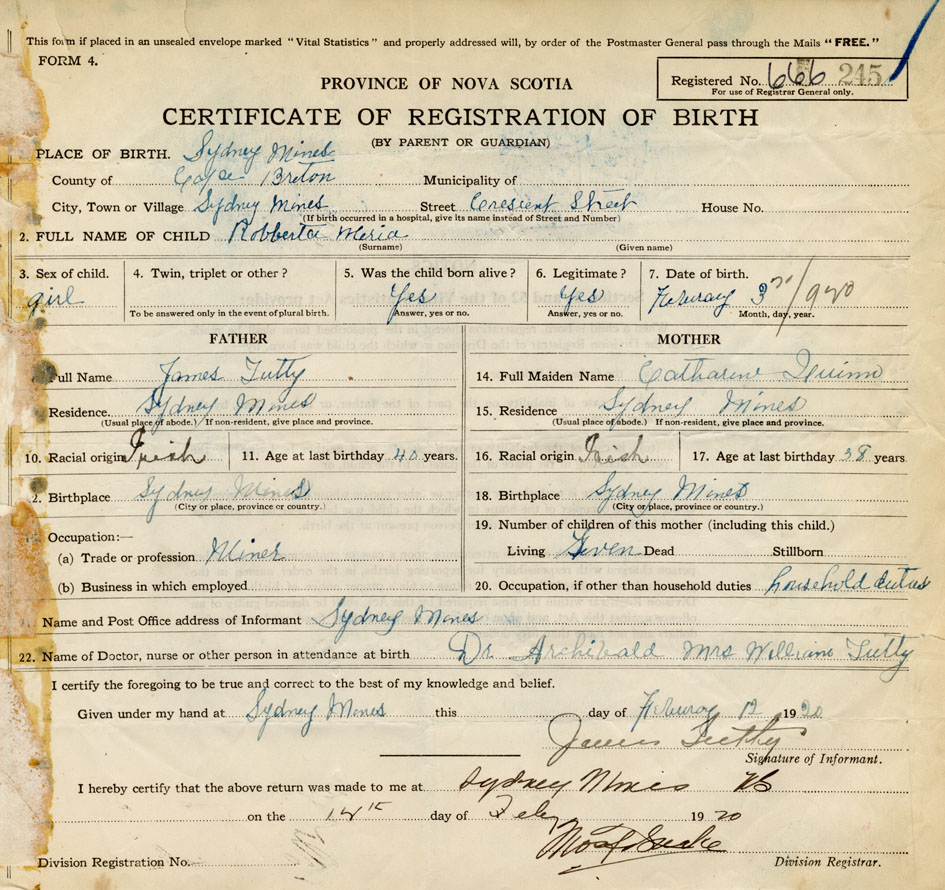 This form if placed in an unsealed envelope marked "Vital Statistics" and properly addressed will, by order of the Postmaster General pass through the Mails "FREE."
FORM 4.
PROVINCE OF NOVA SCOTIA
Registered No. 666 245
For use of Registrar General only.
CERTIFICATE OF REGISTRATION OF BIRTH
(BY PARENT OR GUARDIAN)
PLACE OF BIRTH. Sydney Mines
County of Cape Breton Municipality of
City, Town or Village Sydney Mines Street Cresient Street House No.
(If birth occurred in a hospital, give its name instead of Street and Number)
2. FULL NAME OF CHILD Robberta Meria
(Surname) (Given name)
3. Sex of child. 4. Twin, triplet or other? 5. Was the child born alive? 6. Legitimate? 7. Date of birth.
girl Yes Yes Februray 3 1920
To be answered only in the event of plural birth. Answer, yes or no. Answer, yes or no. Month, day, year.
FATHER MOTHER
Full Name James Tutty 14. Full Maiden Name Catharine Quinn
Residence. Sydney Mines 15. Residence Sydney Mines
(Usual place of abode.) If non-resident, give place and province. (Usual place of abode.) If non-resident, give place and province.
10. Racial origin Irish 11. Age at last birthday 40 years. 16. Racial origin Irish 17. Age at last birthday 38 years
2. Birthplace Sydney Mines 18. Birthplace Sydney Mines
(City or place, province or country.) (City or place, province or country.)
Occupation:— 19. Number of children of this mother (including this child.)
(a) Trade or profession Miner Living Seven Dead Stillborn
(b) Business in which employed 20. Occupation, if other than household duties household duties
Name and Post Office address of Informant Sydney Mines
22. Name of Doctor, nurse or other person in attendance at birth Dr Archibald Mrs William Tutty
I certify the foregoing to be true and correct to the best of my knowledge and belief.
Given under my hand at Sydney Mines this day of Februray 12 1920
James Tutty
Signature of Informant.
I hereby certify that the above return was made to me at Sydney Mines
on the 14th day of Feby 1920
Division Registration No. Division Registrar.